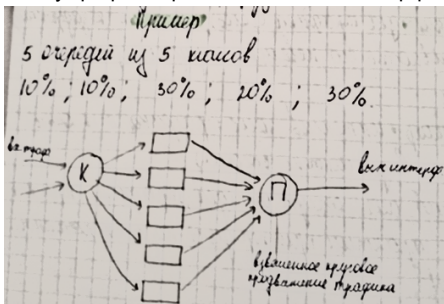 Пример
5 очередей из 5 классов
10%; 10%; 30%; 20%; 30%.
вх. траф
К
П
вых интерф
взвешенное круговое
трафика